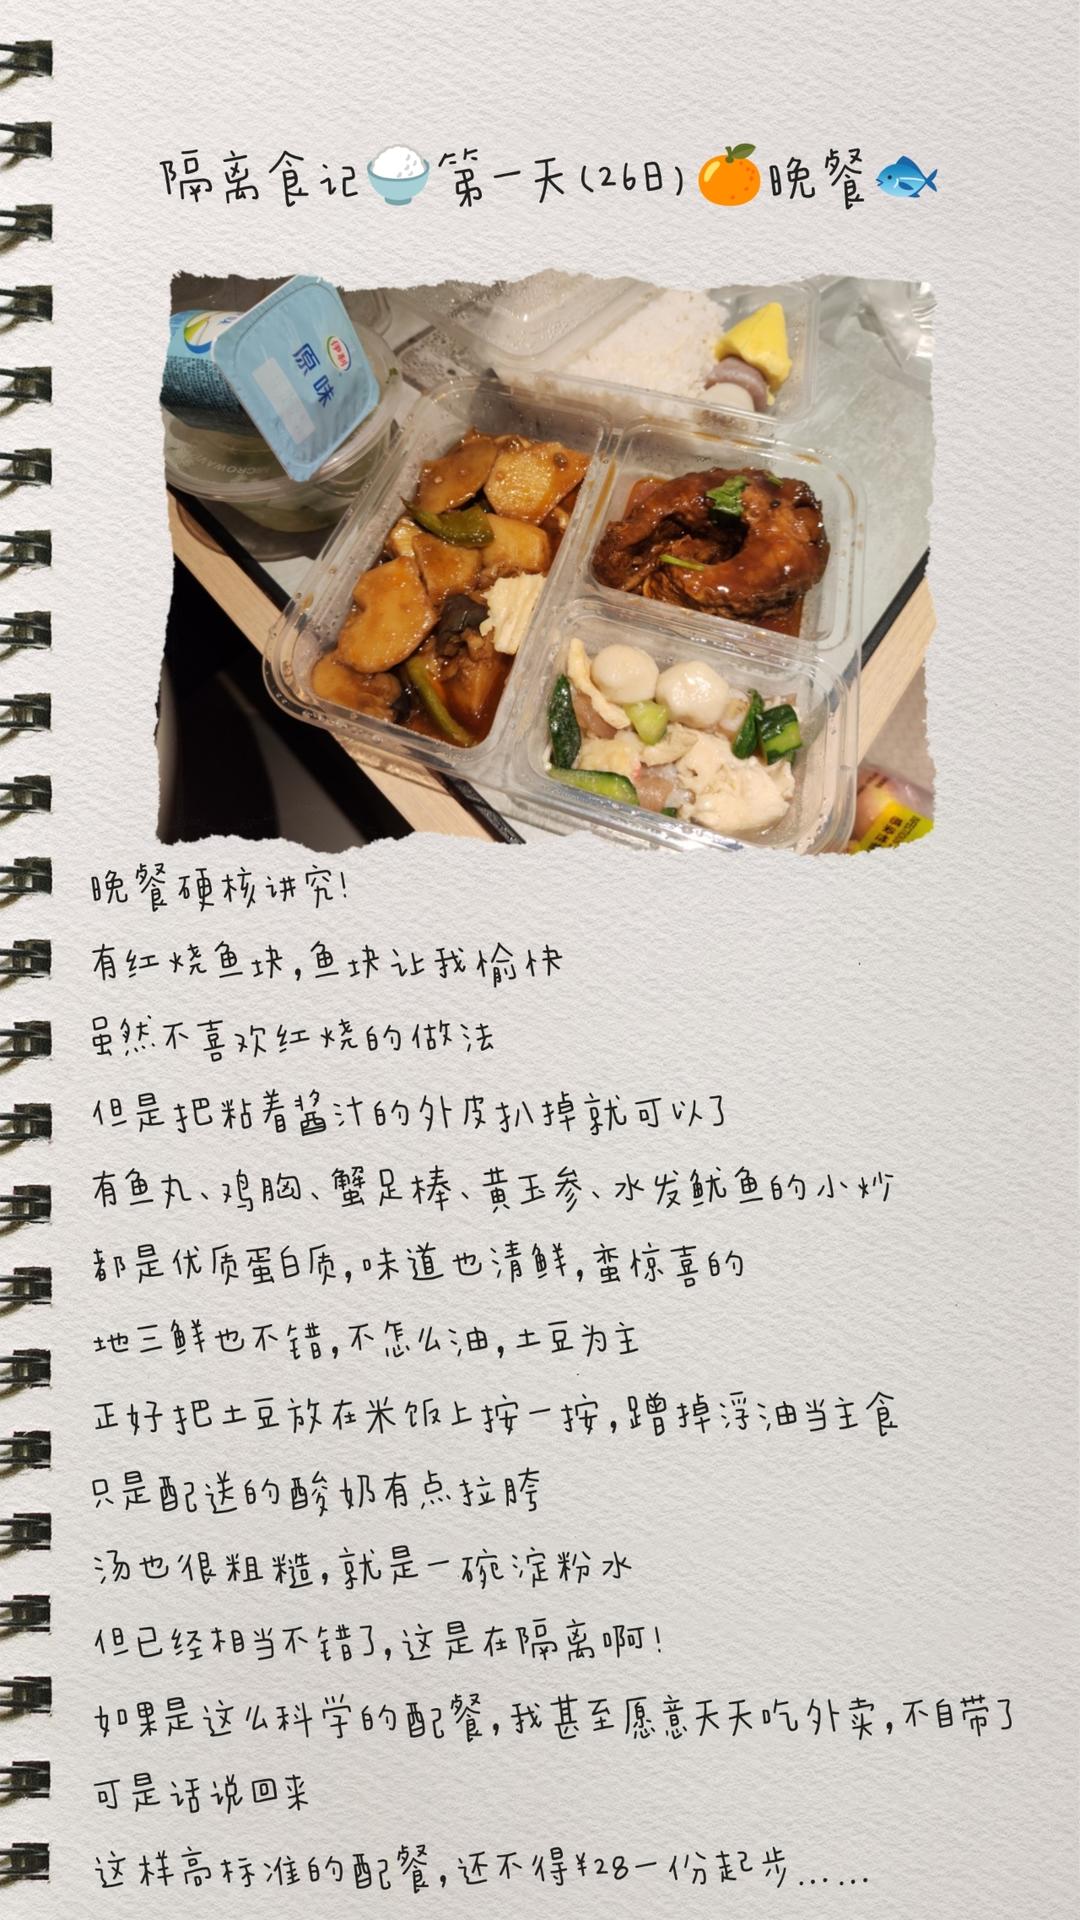 隔离食记🍚第一天(26日)🍊晚餐🐟
伊利
原味
MICROWAV
晚餐硬核讲究!
有红烧鱼块,鱼块让我愉快
虽然不喜欢红烧的做法
但是把粘着酱汁的外皮扒掉就可以了
有鱼丸、鸡胸、蟹足棒、黄玉参、水发鱿鱼的小炒
都是优质蛋白质,味道也清鲜,蛮惊喜的
地三鲜也不错,不怎么油,土豆为主
正好把土豆放在米饭上按一按,蹭掉浮油当主食
只是配送的酸奶有点拉胯
汤也很粗糙,就是一碗淀粉水
但已经相当不错了,这是在隔离啊!
如果是这么科学的配餐,我甚至愿意天天吃外卖,不自带了
可是话说回来
这样高标准的配餐,还不得¥28一份起步……